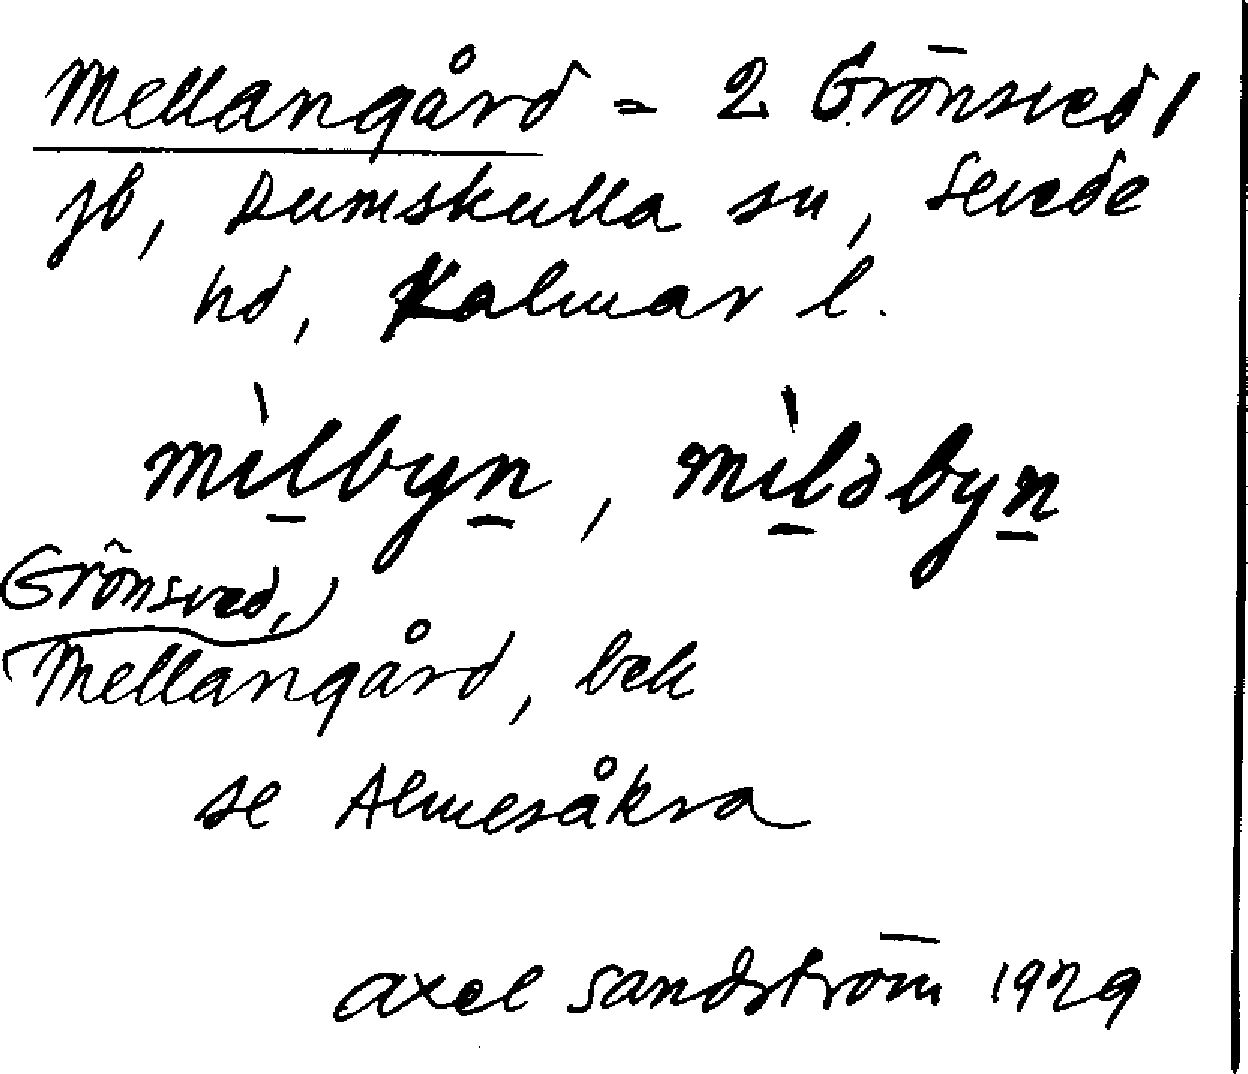 Mellangård = 2 Grönsved/
jb, Rumskulla sn, Sevede
hd, Kalmar l.
mìlbyn, mìlabyn
Grönsved,
Mellangård, bek
se Almesåkra
Axel Sandström 1929